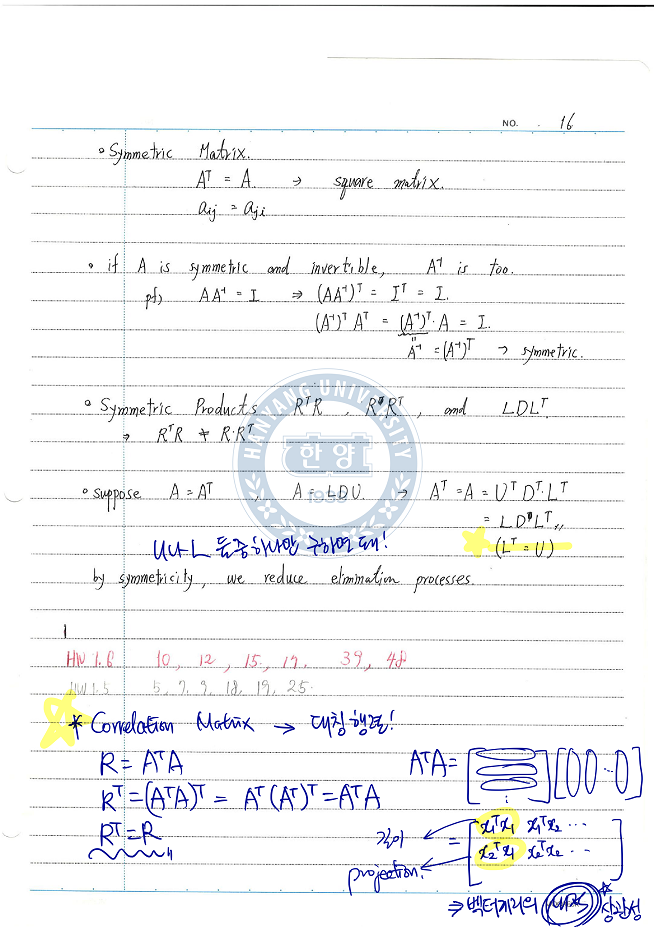 NO. 16
◦ Symmetric Matrix.
Aᵀ = A. → square matrix.
aij = aji
◦ if A is symmetric and invertible, A⁻¹ is too.
pf) AA⁻¹ = I ⇒ (AA⁻¹)ᵀ = Iᵀ = I.
(A⁻¹)ᵀ Aᵀ = (A⁻¹)ᵀ·A = I.
A⁻¹ = (A⁻¹)ᵀ → symmetric.
◦ Symmetric Products RᵀR, RRᵀ, and LDLᵀ.
→ RᵀR ≠ R·Rᵀ
HANYANG UNIVERSITY
한양
1939
◦ suppose A = Aᵀ, A = LDU. → Aᵀ = A = UᵀDᵀ·Lᵀ
= LDLᵀ
U나 L 둘중하나만 구하면 돼!
(Lᵀ = U)
by symmetricity, we reduce elimination processes.
HW 1.6 10, 12, 15, 17. 39, 48
HW 1.5 5, 7, 9, 18, 19, 25.
* Correlation Matrix → 대칭행렬!
R = AᵀA
AᵀA =
Rᵀ = (AᵀA)ᵀ = Aᵀ(Aᵀ)ᵀ = AᵀA
Rᵀ = R
길이
= x₁ᵀx₁ x₁ᵀx₂ ⋯
x₂ᵀx₁ x₂ᵀx₂ ⋯
projection.
⇒ 벡터끼리의 * 상관성